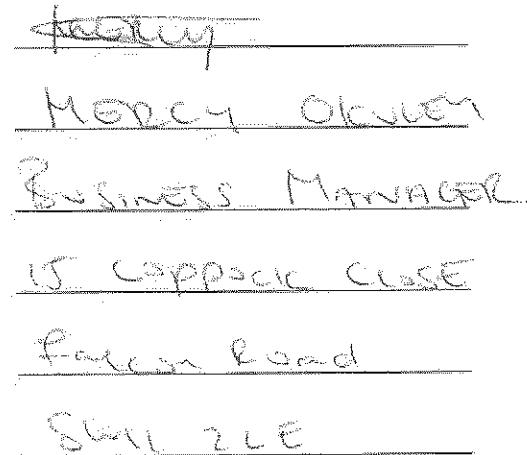 MERCY OKULEY
BUSINESS MANAGER
15 COPPOCK CLOSE
Falcon Road
SW11 2LE